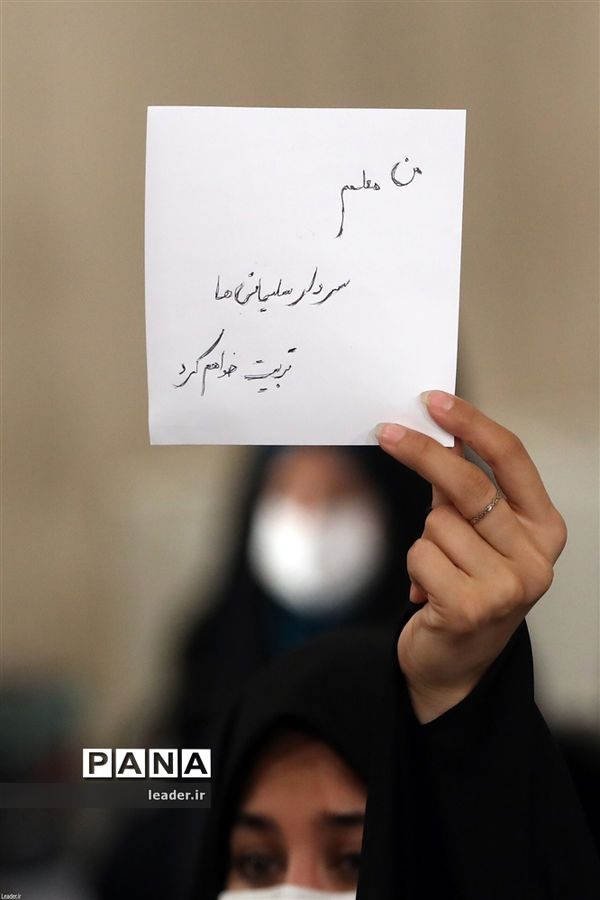 من معلمم
سردار سلیمانی‌ها
تربیت خواهم کرد
PANA
leader.ir
Leader.ir